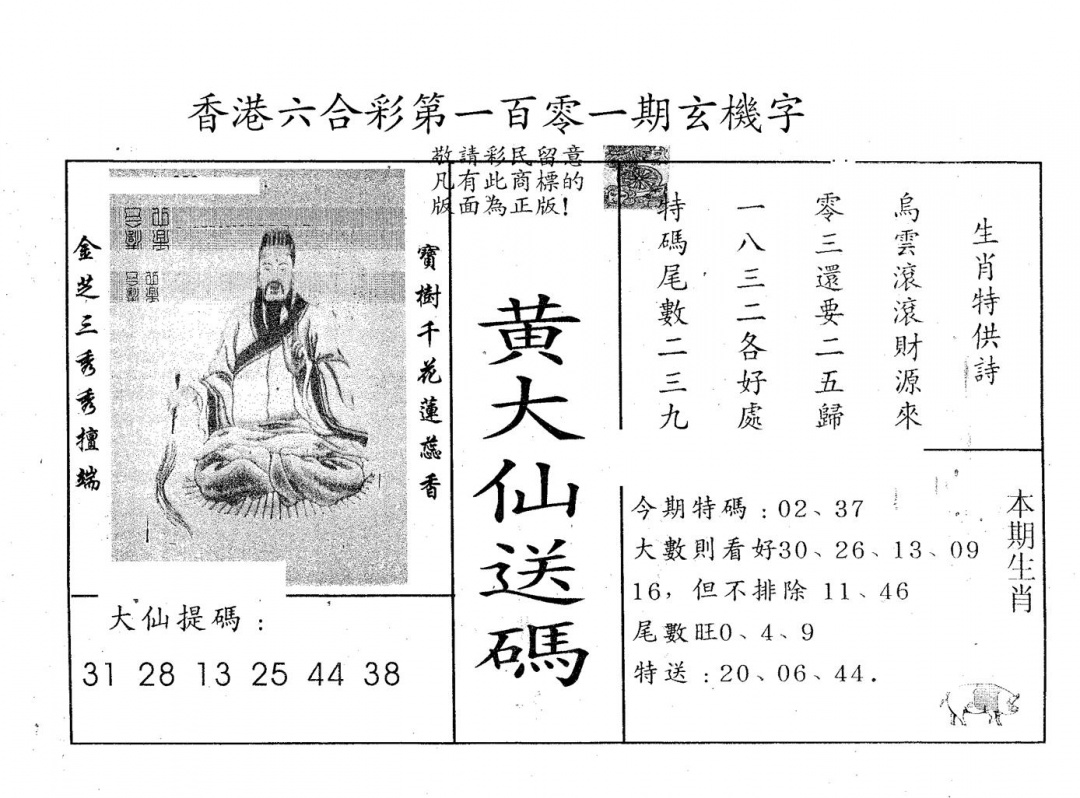 香港六合彩第一百零一期玄機字
敬請彩民留意
凡有此商標的
版面為正版!
寶樹千花蓮蕊香
金芝三秀秀擅端
大仙提碼：
31 28 13 25 44 38
黃大仙送碼
生肖特供詩
烏雲滾滾財源來
零三還要二五歸
一八三二各好處
特碼尾數二三九
本期生肖
今期特碼：02、37
大數則看好30、26、13、09
16，但不排除 11、46
尾數旺0、4、9
特送：20、06、44.